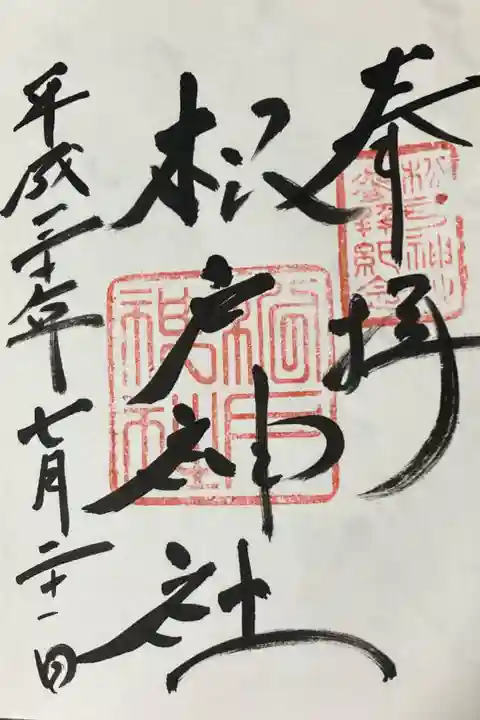 奉拝
松戸神社
平成三十年七月二十一日
松戸神社
参拝記念
松戸神社